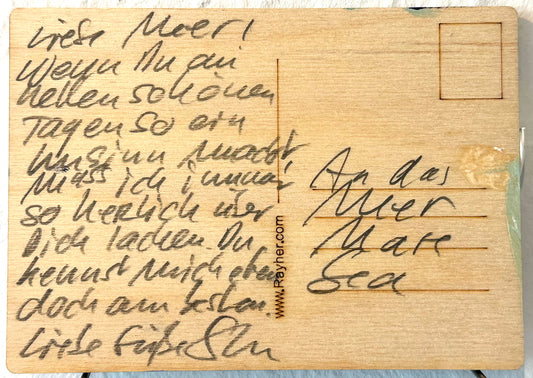 Liebe Meer!
Wenn Du an
hellen schönen
Tagen so ein
Unsinn machst,
Muss ich immer
so herzlich über
Dich lachen. Du
kennst mich eben
doch am besten.
Liebe Grüße
An das
Meer
Mare
Sea
www.Rayher.com